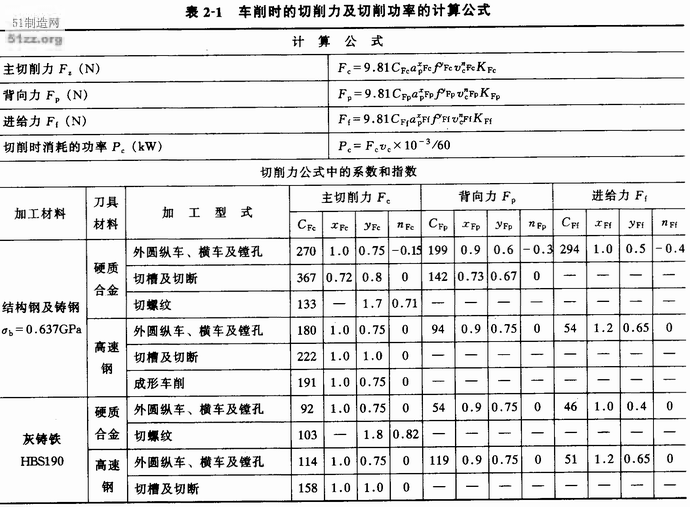 51制造网
51zz.org
表 2-1 车削时的切削力及切削功率的计算公式
计 算 公 式
主切削力 Fz (N) Fc=9.81CFc ap^xFc f^yFc vc^nFc KFc
背向力 Fp (N) Fp=9.81CFp ap^xFp f^yFp vc^nFp KFp
进给力 Ff (N) Ff=9.81CFf ap^xFf f^yFf vc^nFf KFf
切削时消耗的功率 Pc (kW) Pc=Fcvc×10⁻³/60
切削力公式中的系数和指数
加工材料 刀具材料 加 工 型 式 主切削力 Fc 背向力 Fp 进给力 Ff
CFc xFc yFc nFc CFp xFp yFp nFp CFf xFf yFf nFf
结构钢及铸钢 σb=0.637GPa
硬质合金
外圆纵车、横车及镗孔 270 1.0 0.75 -0.15 199 0.9 0.6 -0.3 294 1.0 0.5 -0.4
切槽及切断 367 0.72 0.8 0 142 0.73 0.67 0 — — — —
切螺纹 133 — 1.7 0.71 — — — — — — — —
高速钢
外圆纵车、横车及镗孔 180 1.0 0.75 0 94 0.9 0.75 0 54 1.2 0.65 0
切槽及切断 222 1.0 1.0 0 — — — — — — — —
成形车削 191 1.0 0.75 0 — — — — — — — —
灰铸铁 HBS190
硬质合金
外圆纵车、横车及镗孔 92 1.0 0.75 0 54 0.9 0.75 0 46 1.0 0.4 0
切螺纹 103 — 1.8 0.82 — — — — — — — —
高速钢
外圆纵车、横车及镗孔 114 1.0 0.75 0 119 0.9 0.75 0 51 1.2 0.65 0
切槽及切断 158 1.0 1.0 0 — — — — — — — —